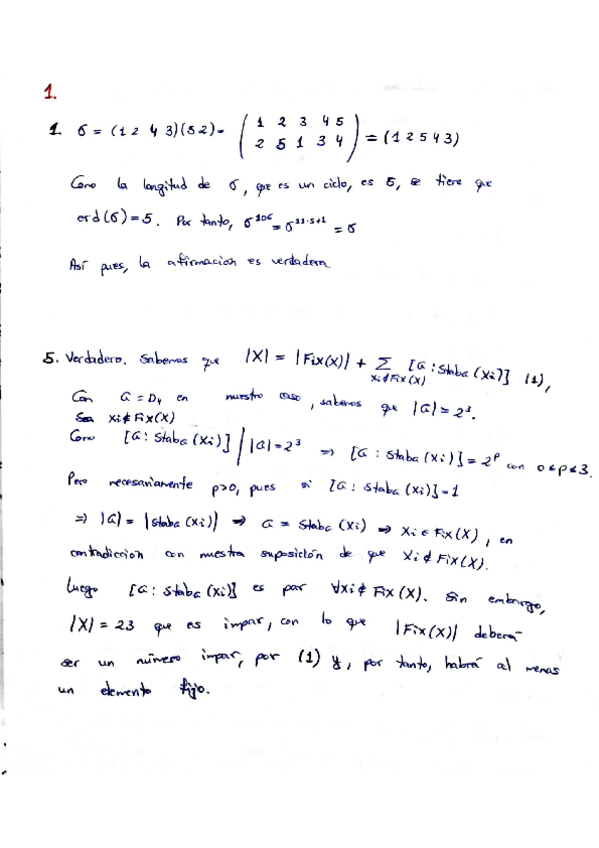 1.
1. σ = (1 2 4 3)(5 2) = ( 1 2 3 4 5 / 2 5 1 3 4 ) = (1 2 5 4 3)
Como la longitud de σ, que es un ciclo, es 5, se tiene que
ord(σ) = 5. Por tanto, σ^106 = σ^{21·5+1} = σ
Así pues, la afirmación es verdadera.
5. Verdadero. Sabemos que |X| = |Fix(X)| + Σ_{xi∉Fix(X)} [G : Stab_G(xi)] (1),
Con G = D4 en nuestro caso, sabemos que |G| = 2^3.
Sea xi ∉ Fix(X)
Como [G : Stab_G(xi)] | |G| = 2^3 ⇒ [G : Stab_G(xi)] = 2^p con 0≤p≤3.
Pero necesariamente p>0, pues si [G : Stab_G(xi)] = 1
⇒ |G| = |Stab_G(xi)| ⇒ G = Stab_G(xi) ⇒ xi ∈ Fix(X), en
contradicción con nuestra suposición de que xi ∉ Fix(X).
Luego [G : Stab_G(xi)] es par ∀xi ∉ Fix(X). Sin embargo,
|X| = 23 que es impar, con lo que |Fix(X)| deberá
ser un número impar, por (1) y, por tanto, habrá al menos
un elemento fijo.